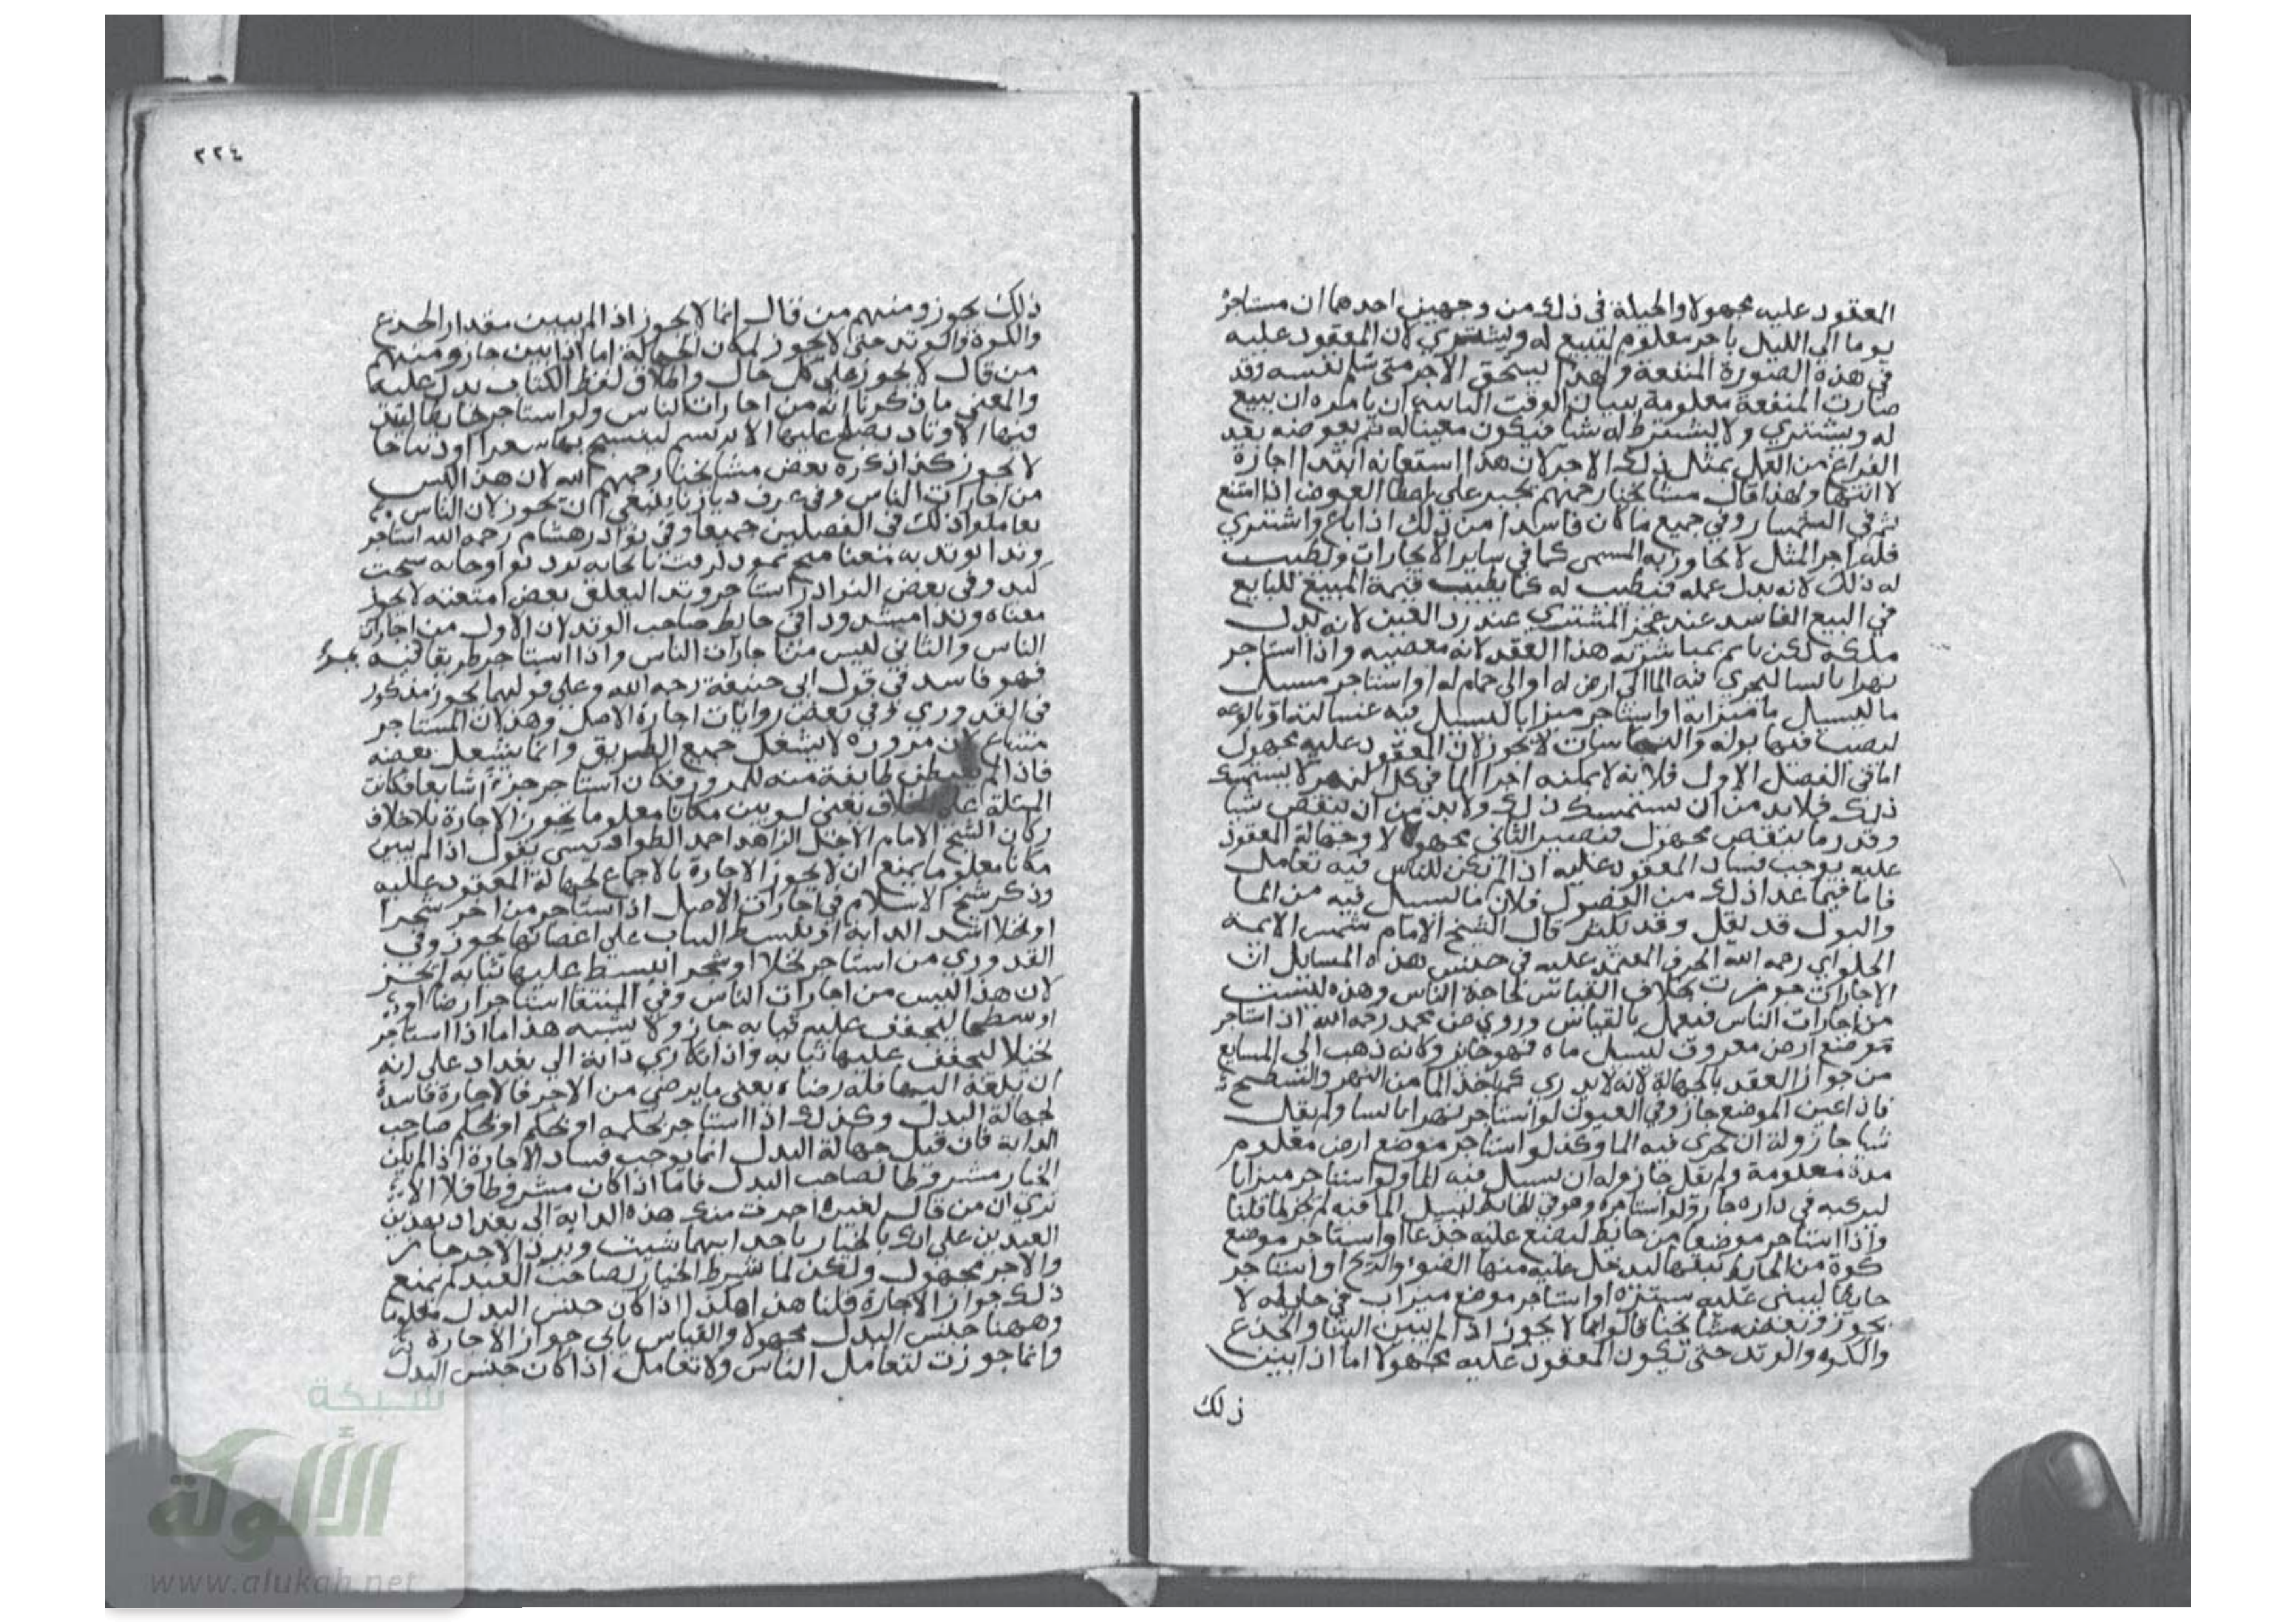 العقود عليه مجهولا والحيلة في ذلك من وجهين احدهما ان مستاجر
يوما الي الليل باجر معلوم لتبيع له ويشتري لان المعقود عليه
في هذه الصورة المنفعة ولهذا يستحق الاجر متى سلم نفسه وقد
صارت المنفعة معلومة ببيان الوقت الثاني ان يامره ان يبيع
له ويشتري ولا يشترط له شيا فيكون معينا له ثم يعوضه بعد
الفراغ من العمل بمثل ذلك الاجر لان هذا استعانة ابتدا اجازة
لا انتها ولهذا قال مشايخنا رحمهم يجبر على اعطا العوض اذا امتنع
ثم في السمسار وفي جميع ما كان فاسدا من ذلك اذا باع واشتري
فله اجر المثل لا يجاوز به المسمى كما في ساير الاجارات ويطيب
له ذلك لانه بدل عمله فيطيب له كما يطيب قيمة المبيع للبايع
في البيع الفاسد عند عجز المشتري عند رد العين لانه بدل
ملكه لكن ياثم بمباشرته هذا العقد لانه معصيه واذا استاجر
نهرا يابسا ليجري فيه الما الي ارض له او الي حمام له او استاجر مسيل
ما ليسيل ما ميزابه او استاجر ميزابا ليسيل فيه غسالته او بالوعه
ليصب فيها بوله والنجاسات لا يجوز لان المعقود عليه مجهول
اما في الفصل الاول فلانه لا يمكنه اجرا الما في كل النهر لا يستمسك
ذلك فلابد من ان يستمسك ذلك ولا بد من ان ينقص شيا
وقدر ما ينقص مجهول فيصير الثاني مجهولا وجهالة المعقود
عليه يوجب فساد المعقود عليه اذا لم تكن للناس فيه تعامل
فاما فيما عدا ذلك من الفصول فلان ما يسيل فيه من الما
والبول قد يقل وقد يكثر قال الشيخ الامام شمس الايمة
الحلواي رحمه الله الحرف المعتمد عليه في جنس هذه المسايل ان
الاجارات جوزت بخلاف القياس لحاجة الناس وهذه ليست
من اجارات الناس فيعمل بالقياس وروي عن محمد رحمه الله اذا استاجر
موضع ارض معروف ليسيل ماه فهو جائز ولانه ذهب الى المسايع
من جواز العقد بالجهالة لانه لا يدري كم ياخذ الما من النهر والسطح
فاذا عين الموضع جاز وفي العيون لو استاجر نهرا يابسا ولم يقل
شيا جاز وله ان يجري فيه الما وكذا لو استاجر موضع ارض معلوم
مدة معلومة ولم يقل جاز وله ان يسيل فيه الما ولو استاجر ميزابا
ليركبه في داره جاز ولو استاجره وهو في الحايط ليسيل الما فيه لم يجز لما قلنا
واذا استاجر موضعا من حايط ليضع عليه جذعا او استاجر موضع
كوة من الحايط ينقبها ليدخل عليه منها الضوء والريح او استاجر
حايطا ليبني عليه ستره او استاجر موضع ميزاب في حايطه لا
يجوز وبعض مشايخنا قالوا انما لا يجوز اذا لم يبين البنا والجذع
والكوه والوتد حتى تكون المعقود عليه مجهولا اما اذا بيّن
ذلك
٢٢٤
ذلك يجوز ومنهم من قال انما لا يجوز اذا لم يبين مقدار الجذع
والكوة والوتد حتى لا يجوز لمكان الجهالة اما اذا بين جاز ومنهم
من قال لا يجوز على كل حال واطلاق لفظ الكتاب يدل عليه
والمعني ما ذكرنا انه من اجارات الناس ولو استاجر حايطا ليتد
فيها الاوتاد يصلح عليها الابريسم لينسج بها شعرا او ديباجا
لا يجوز كذا ذكره بعض مشايخنا رحمهم الله لان هذا ليس
من اجارات الناس وفي عرف ديارنا ينبغي ان تجوز لان الناس
تعاملوا ذلك في الفصلين جميعا وفي نوادر هشام رحمه الله استاجر
وتدا يوتد به
وفي بعض النوادر استاجر وتدا ليعلق بعض امتعته لا يجوز
معناه وتدا مشدودا في حايط صاحب الوتد لان الاول من اجارات
الناس والثاني ليس من اجارات الناس واذا استاجر طريقا فيه يمر
فهو فاسد في قول ابي حنيفة رحمه الله وعلى قولهما يجوز مذكور
في القدوري وفي بعض روايات اجارة الاصل وهذا لان المستاجر
مشاع لان مروره لا يشغل جميع الطريق وانما يشغل بعضه
فاذا لم طايفة منه للمرور فكان استاجر جزءا شايعا فكانت
المسئلة على الخلاف يعني لو بين مكانا معلوما يجوز الاجارة بلا خلاف
وكان الشيخ الامام الاجل الزاهد احمد الطواويسي يقول اذا لم يبين
مكانا معلوما ينبغي ان لا يجوز الاجارة بالاجماع لجهالة المعقود عليه
وذكر شيخ الاسلام في اجارات الاصل اذا استاجر من اخر شجرا
او نخلا ليشد الدابة او يبسط الثياب علي اغصانها يجوز وفي
القدوري من استاجر نخلا او شجر ليبسط عليها ثيابه لم يجز
لان هذا ليس من اجارات الناس وفي المنتقا استاجر ارضا او
او سطحا ليجفف عليه ثيابه جاز ولا يشبه هذا ما اذا استاجر
نخيلا ليجفف عليها ثيابه واذا تكاري دابة الى بغداد على انه
ان بلغه اليها فله رضاه يعني ما يرضي من الاجر فالاجارة فاسدة
لجهالة البدل وكذلك اذا استاجر بحكمه او بحكم صاحب
الدابة فان قيل جهالة البدل انما يوجب فساد الاجارة اذا لم يكن
الخيار مشروطا لصاحب البدل فاما اذا كان مشروطا فلا الا
تري ان من قال لغيره اجرت منك هذه الدابة الى بغداد بهذين
العبدين على انك بالخيار باحد ايهما شيت وترد الاخر جاز
والاجر مجهول ولكن لما شرط الخيار لصاحب العبد لم يمنع
ذلك جواز الاجارة قلنا هذا هكذا اذا كان جنس البدل معلوما
وههنا جنس البدل مجهولا والقياس يابي جواز الاجارة
وانما جوزت لتعامل الناس ولا تعامل اذا كان جنس البدل
شبكة
الألوكة
www.alukah.net